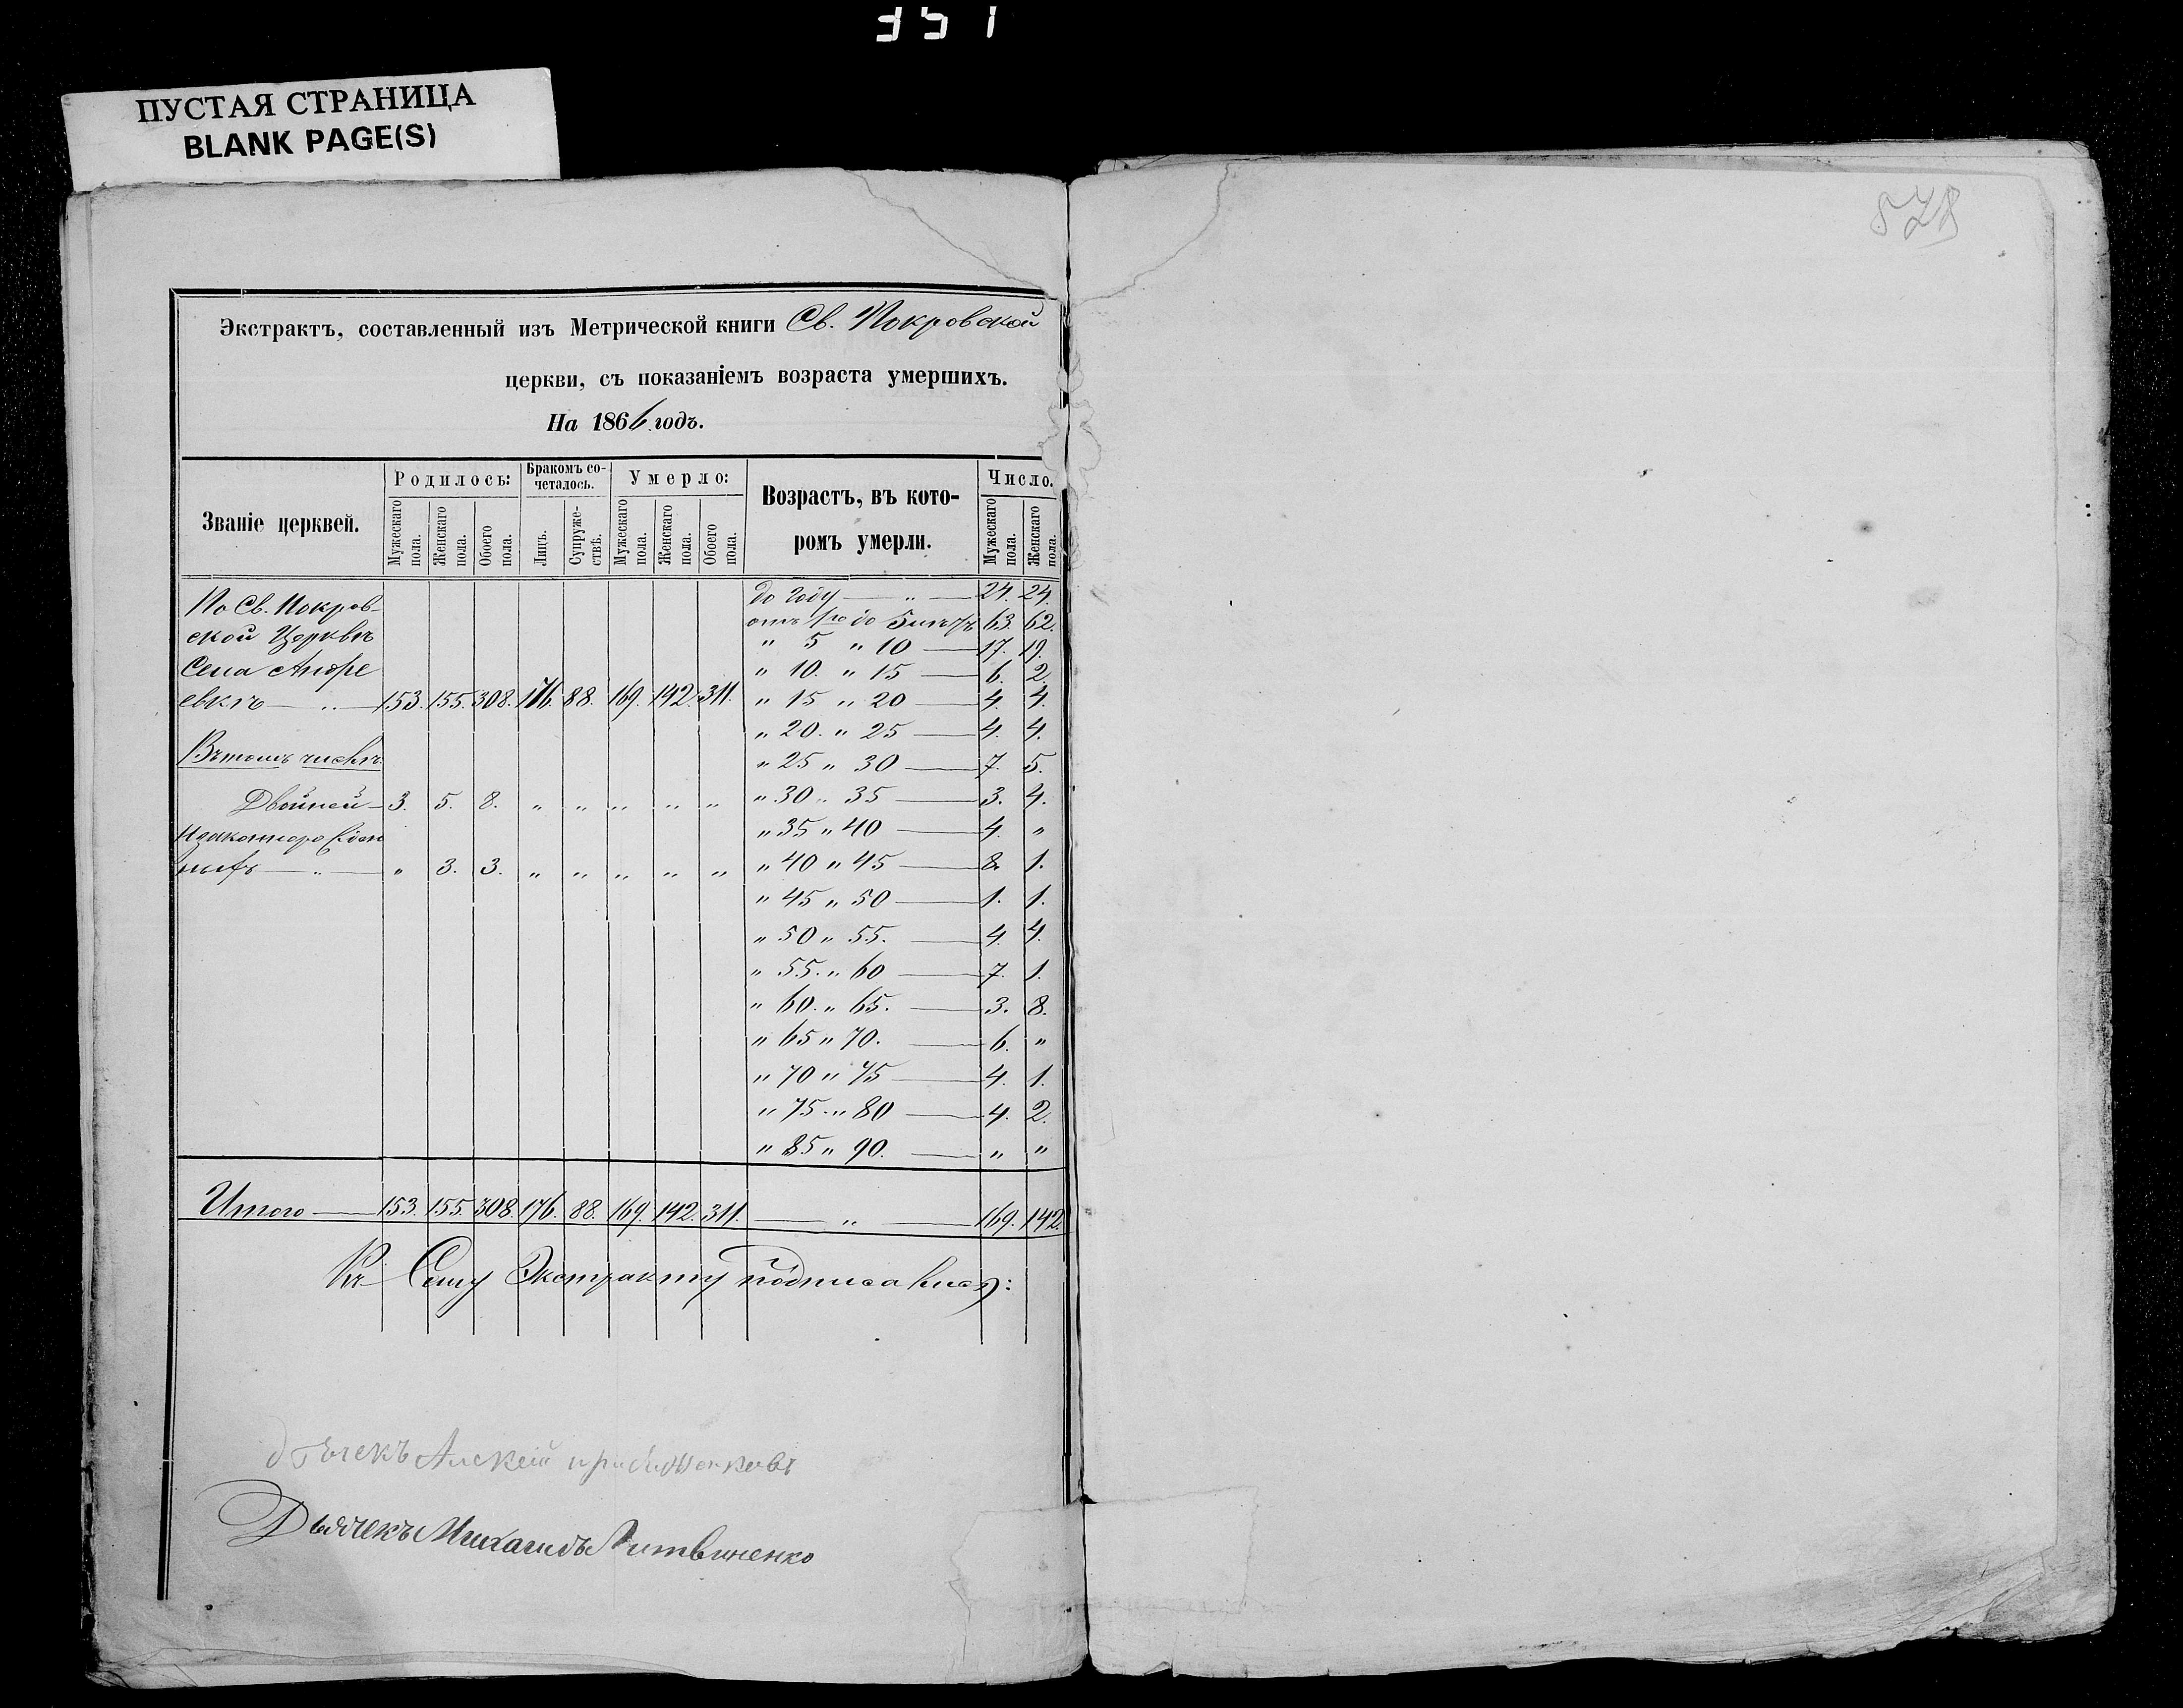 351
ПУСТАЯ СТРАНИЦА
BLANK PAGE(S)
578
Экстрактъ, составленный изъ Метрической книги Св. Покровской
церкви, съ показаніемъ возраста умершихъ.
На 1866 годъ.
Званіе церквей. Родилось: Бракомъ со-четалось. Умерло: Возрастъ, въ кото-ромъ умерли. Число.
Мужескаго пола. Женскаго пола. Обоего пола. Лицъ. Супруже-ствѣ. Мужескаго пола. Женскаго пола. Обоего пола. Мужескаго пола. Женскаго пола.
По Св. Покров- до году — „ — 24. 24.
ской Церквѣ отъ 1го до 5 63. 62.
„ 5 „ 10 — 17. 19.
Села Андре „ 10. „ 15 — 6. 2.
евкѣ — „ — 153. 155. 308. 176. 88. 169. 142. 311. „ 15 „ 20 — 4. 4.
„ 20. „ 25 — 4. 4.
Въ томъ числѣ „ 25 „ 30 — 7. 5.
Двойней — 3. 5. 8. „ „ „ „ „ „ 30 „ 35 — 3. 4.
„ 35 „ 40 — 4. „
ныхъ — „ — „ 3. 3. „ „ „ „ „ „ 40 „ 45 — 8. 1.
„ 45 „ 50 — 1. 1.
„ 50 „ 55. — 4. 4.
„ 55. „ 60 — 7. 1.
„ 60. „ 65. — 3. 8.
„ 65 „ 70. — 6. „
„ 70 „ 75 — 4. 1.
„ 75. „ 80 — 4. 2.
„ 85 „ 90. — „ „
Итого — 153. 155. 308. 176. 88. 169. 142. 311. — „ — 169. 142.
Къ Сему Экстракту подписались:
Дьячекъ Михаилъ Литвиненко